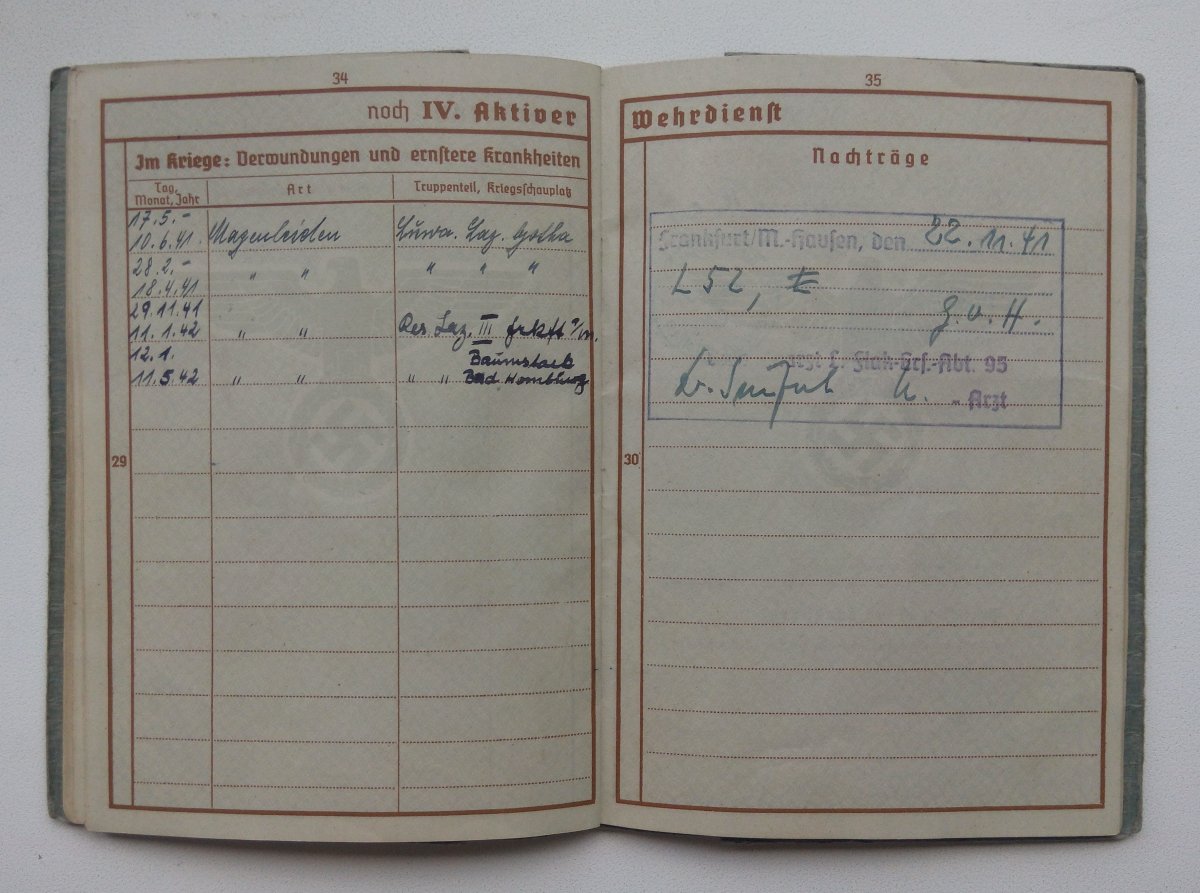 34
noch IV. Aktiver
Im Kriege: Verwundungen und ernstere Krankheiten
Tag, Monat, Jahr Art Truppenteil, Kriegsschauplatz
17.5.-
10.6.41. Magenleiden Luftw. Laz. Gotha
28.2.-
18.4.41 " " " " "
29.11.41
11.1.42 " " Res. Laz. III Frkft a/M.
12.1. Baumstark
11.5.42 " " " " Bad Homburg
29
35
Wehrdienst
Nachträge
Frankfurt/M.-Hausen, den 22.11.41
L 52,
g.v.H.
arzt L. Flak-Ers.-Abt. 95
Dr.
- Arzt
30